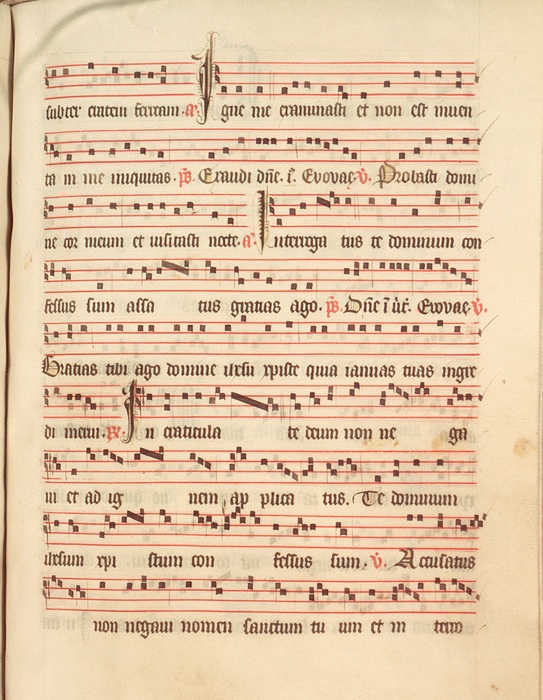 subter cratem ferream. a. Igne me examinasti et non est inuen
ta in me iniquitas. ps. Exaudi dne. i. Evovae. v. Probasti domi
ne cor meum et uisitasti nocte. a. Interroga tus te dominum con
fessus sum assa tus gratias ago. ps. Dne Evovae. v.
Gratias tibi ago domine iesu xpiste quia ianuas tuas ingre
di merui. R. In craticula te deum non ne ga
ui et ad ig nem ap plica tus. Te dominum
ihesum xpi stum con fessus sum. v. Accusatus
non negaui nomen sanctum tu um et in terro